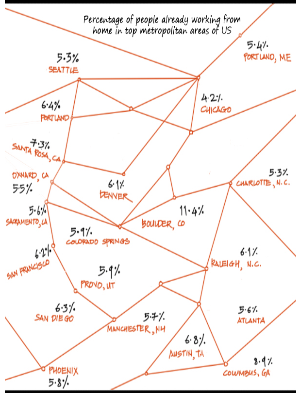 Percentage of people already working from
home in top metropolitan areas of US
5.3%
SEATTLE
5.4%
PORTLAND, ME
6.4%
PORTLAND
4.2%
CHICAGO
7.3%
SANTA ROSA, CA
OXNARD, CA
5.5%
6.1%
DENVER
5.3%
CHARLOTTE, N.C.
5.6%
SACRAMENTO, CA
11.4%
BOULDER, CO
5.9%
COLORADO SPRINGS
6.2%
SAN FRANCISCO
5.9%
PROVO, UT
6.1%
RALEIGH, N.C.
6.3%
SAN DIEGO
5.7%
MANCHESTER, NH
5.6%
ATLANTA
6.8%
AUSTIN, TX
8.9%
COLUMBUS, GA
PHOENIX
5.8%